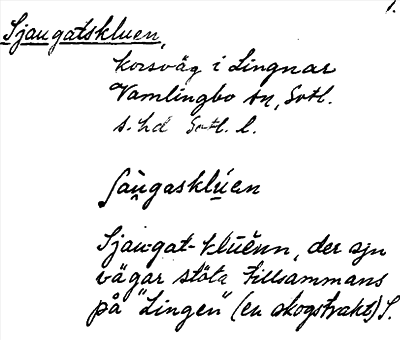 1.
Sjaugatskluen,
korsväg i Lingnar
Vamlingbo sn, Gotl.
s. hd Gotl. l.
ʃàu̯gasklú̯en
Sjau-gat-klūěnn, der sju
vägar stöta tillsammans
på "Lingen" (en skogstrakt) S.